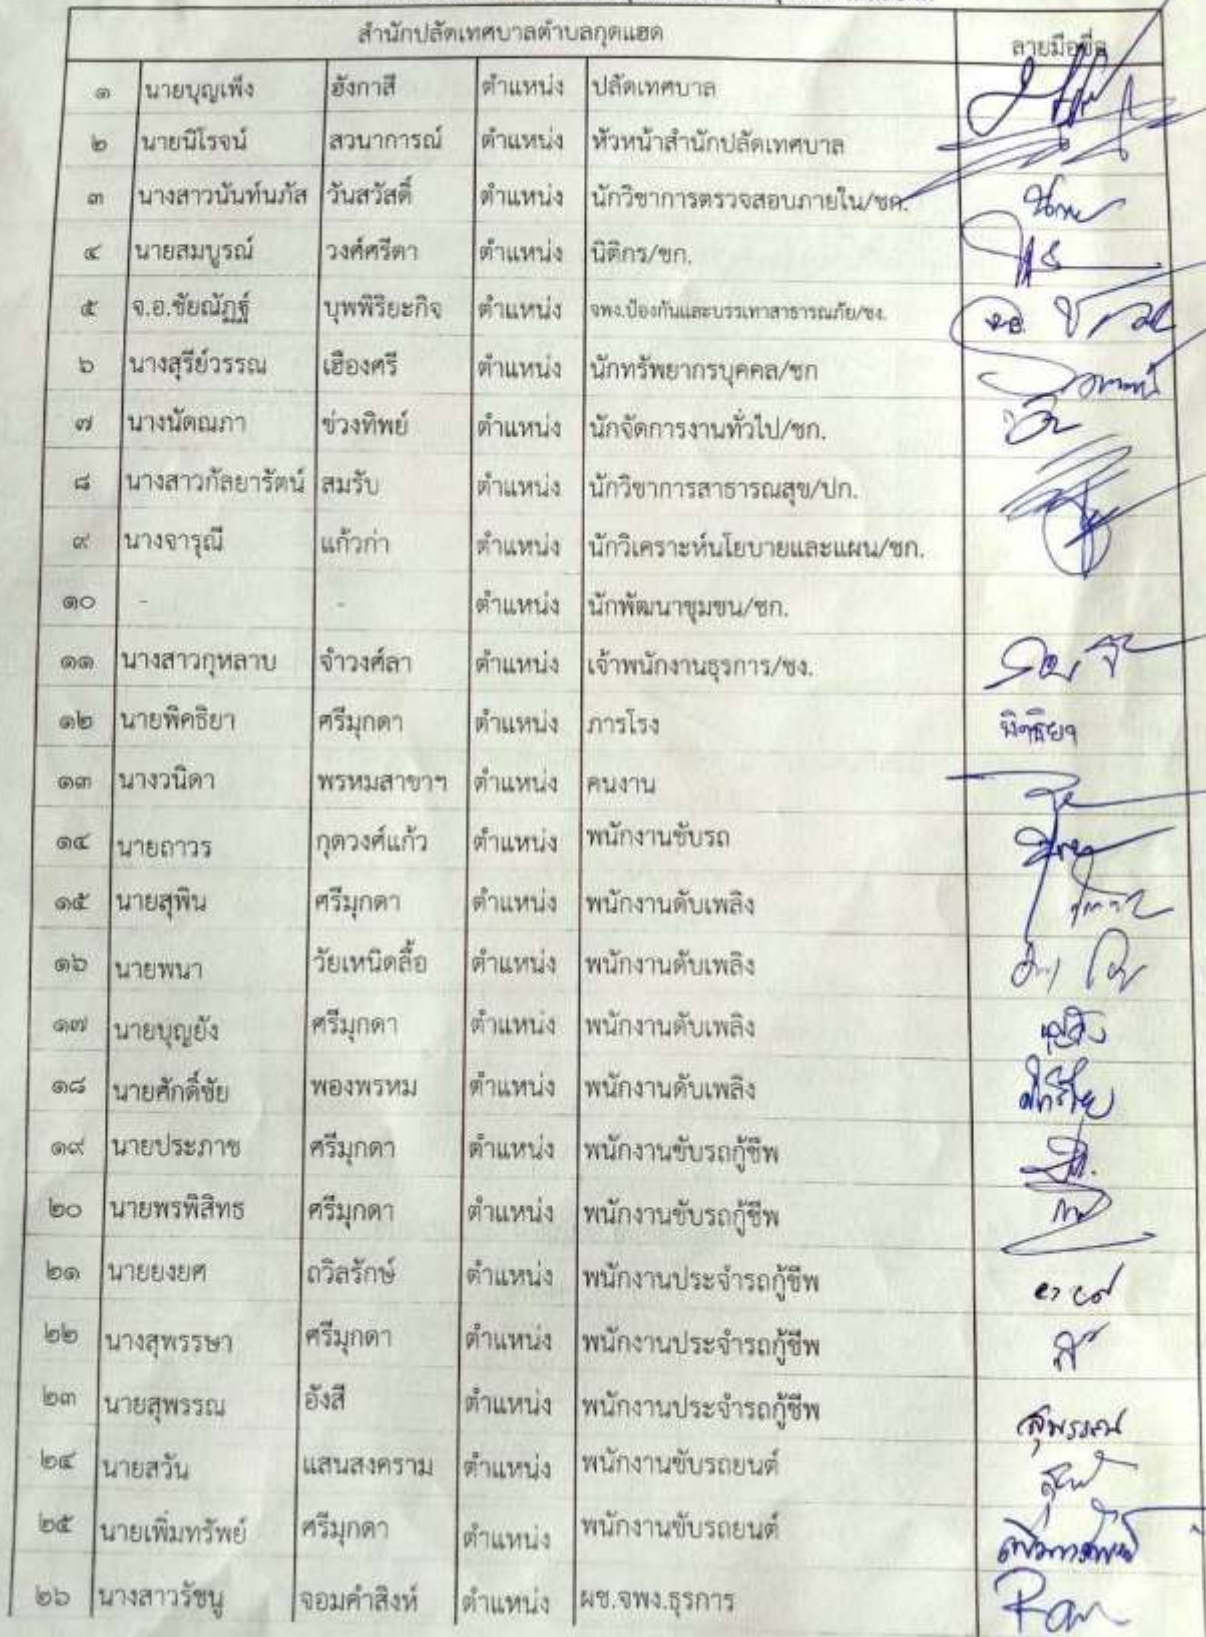 สำนักปลัดเทศบาลตำบลกุดแฮด ลายมือชื่อ
๑ นายบุญเพ็ง ฮังกาสี ตำแหน่ง ปลัดเทศบาล
๒ นายนิโรจน์ สวนาการณ์ ตำแหน่ง หัวหน้าสำนักปลัดเทศบาล
๓ นางสาวนันท์นภัส วันสวัสดิ์ ตำแหน่ง นักวิชาการตรวจสอบภายใน/ชก.
๔ นายสมบูรณ์ วงศ์ศรีตา ตำแหน่ง นิติกร/ชก.
๕ จ.อ.ชัยณัฏฐ์ บุพพิริยะกิจ ตำแหน่ง จพง.ป้องกันและบรรเทาสาธารณภัย/ชง.
๖ นางสุรีย์วรรณ เฮืองศรี ตำแหน่ง นักทรัพยากรบุคคล/ชก
๗ นางนัดณภา ช่วงทิพย์ ตำแหน่ง นักจัดการงานทั่วไป/ชก.
๘ นางสาวกัลยารัตน์ สมรับ ตำแหน่ง นักวิชาการสาธารณสุข/ปก.
๙ นางจารุณี แก้วก่า ตำแหน่ง นักวิเคราะห์นโยบายและแผน/ชก.
๑๐ - - ตำแหน่ง นักพัฒนาชุมชน/ชก.
๑๑ นางสาวกุหลาบ จำวงศ์ลา ตำแหน่ง เจ้าพนักงานธุรการ/ชง.
๑๒ นายพิคธิยา ศรีมุกดา ตำแหน่ง ภารโรง พิคธิยา
๑๓ นางวนิดา พรหมสาขาฯ ตำแหน่ง คนงาน
๑๔ นายถาวร กุดวงศ์แก้ว ตำแหน่ง พนักงานขับรถ
๑๕ นายสุพิน ศรีมุกดา ตำแหน่ง พนักงานดับเพลิง
๑๖ นายพนา วัยเหนิดลื้อ ตำแหน่ง พนักงานดับเพลิง
๑๗ นายบุญยัง ศรีมุกดา ตำแหน่ง พนักงานดับเพลิง บุญยัง
๑๘ นายศักดิ์ชัย พองพรหม ตำแหน่ง พนักงานดับเพลิง
๑๙ นายประภาช ศรีมุกดา ตำแหน่ง พนักงานขับรถกู้ชีพ
๒๐ นายพรพิสิทธ ศรีมุกดา ตำแหน่ง พนักงานขับรถกู้ชีพ
๒๑ นายยงยศ ถวิลรักษ์ ตำแหน่ง พนักงานประจำรถกู้ชีพ
๒๒ นางสุพรรษา ศรีมุกดา ตำแหน่ง พนักงานประจำรถกู้ชีพ
๒๓ นายสุพรรณ อังสี ตำแหน่ง พนักงานประจำรถกู้ชีพ สุพรรณ
๒๔ นายสวัน แสนสงคราม ตำแหน่ง พนักงานขับรถยนต์
๒๕ นายเพิ่มทรัพย์ ศรีมุกดา ตำแหน่ง พนักงานขับรถยนต์ เพิ่มทรัพย์
๒๖ นางสาวรัชนู จอมคำสิงห์ ตำแหน่ง ผช.จพง.ธุรการ